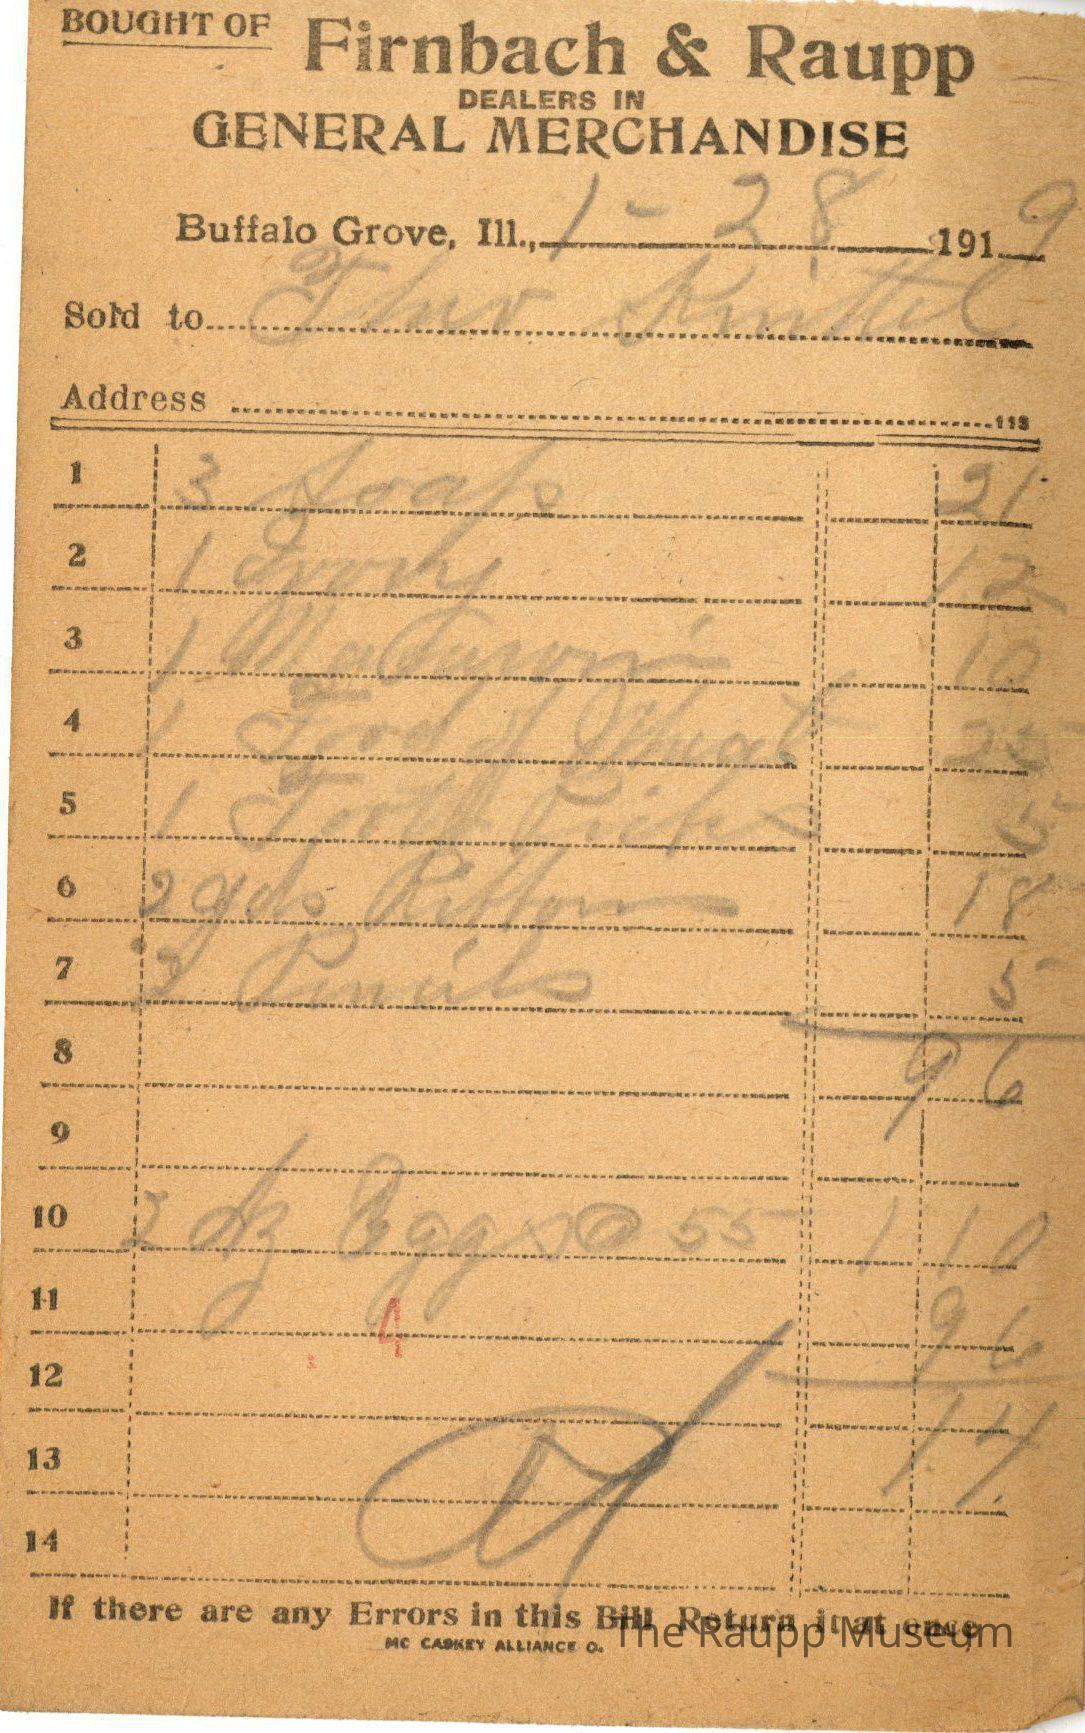 BOUGHT OF Firnbach & Raupp
DEALERS IN
GENERAL MERCHANDISE
Buffalo Grove, Ill., 1-28 1919
Sold to
Address 113
1 3 Soaps 21
2 1 Ivory 12
3 1 Macaroni 10
4 1 Food of Wheat 25
5 1 Tooth Picks 5
6 2 yds Ribbon 18
7 3 Pencils 5
8 96
9
10 2 dz Eggs @ 55 1 10
11 96
4
12 14
13
14
If there are any Errors in this Bill Return it at once
MC CASKEY ALLIANCE O.
The Raupp Museum